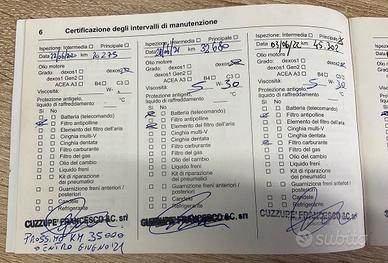 6 Certificazione degli intervalli di manutenzione
Ispezione: Intermedia Principale
Data km 20275
Olio motore
Grado: dexos1 dexos2
dexos1 Gen2
ACEA A3 B4 C3
Viscosità: W-
Protezione antigelo,
liquido di raffreddamento °C
Sì No
Batteria (telecomando)
Filtro antipolline
Elemento del filtro dell'aria
Cinghia multi-V
Cinghia dentata
Filtro carburante
Filtro del gas
Olio del cambio
Liquido freni
Kit di riparazione dei pneumatici
Guarnizione freni anteriori / posteriori
Candele
Refrigerante
CUZZUPE' FRANCESCO &C. srl
PROSS. MO KM 35000
ENTRO GIUGNO 21
Ispezione: Intermedia Principale
Data km 32680
Olio motore
Grado: dexos1 dexos2
dexos1 Gen2
ACEA A3 B4 C3
Viscosità: 5 W- 30
Protezione antigelo,
liquido di raffreddamento °C
Sì No
Batteria (telecomando)
Filtro antipolline
Elemento del filtro dell'aria
Cinghia multi-V
Cinghia dentata
Filtro carburante
Filtro del gas
Olio del cambio
Liquido freni
Kit di riparazione dei pneumatici
Guarnizione freni anteriori / posteriori
Candele
Refrigerante
CUZZUPE' FRANCESCO &C. srl
Ispezione: Intermedia Principale
Data 03/06/22 km 45.202
Olio motore
Grado: dexos1 dexos2
dexos1 Gen2
ACEA A3 B4 C3
Viscosità: 5 W- 30
Protezione antigelo,
liquido di raffreddamento °C
Sì No
Batteria (telecomando)
Filtro antipolline
Elemento del filtro dell'aria
Cinghia multi-V
Cinghia dentata
Filtro carburante
Filtro del gas
Olio del cambio
Liquido freni
Kit di riparazione dei pneumatici
Guarnizione freni anteriori / posteriori
Candele
Refrigerante
CUZZUPE' FRANCESCO &C. srl
subito